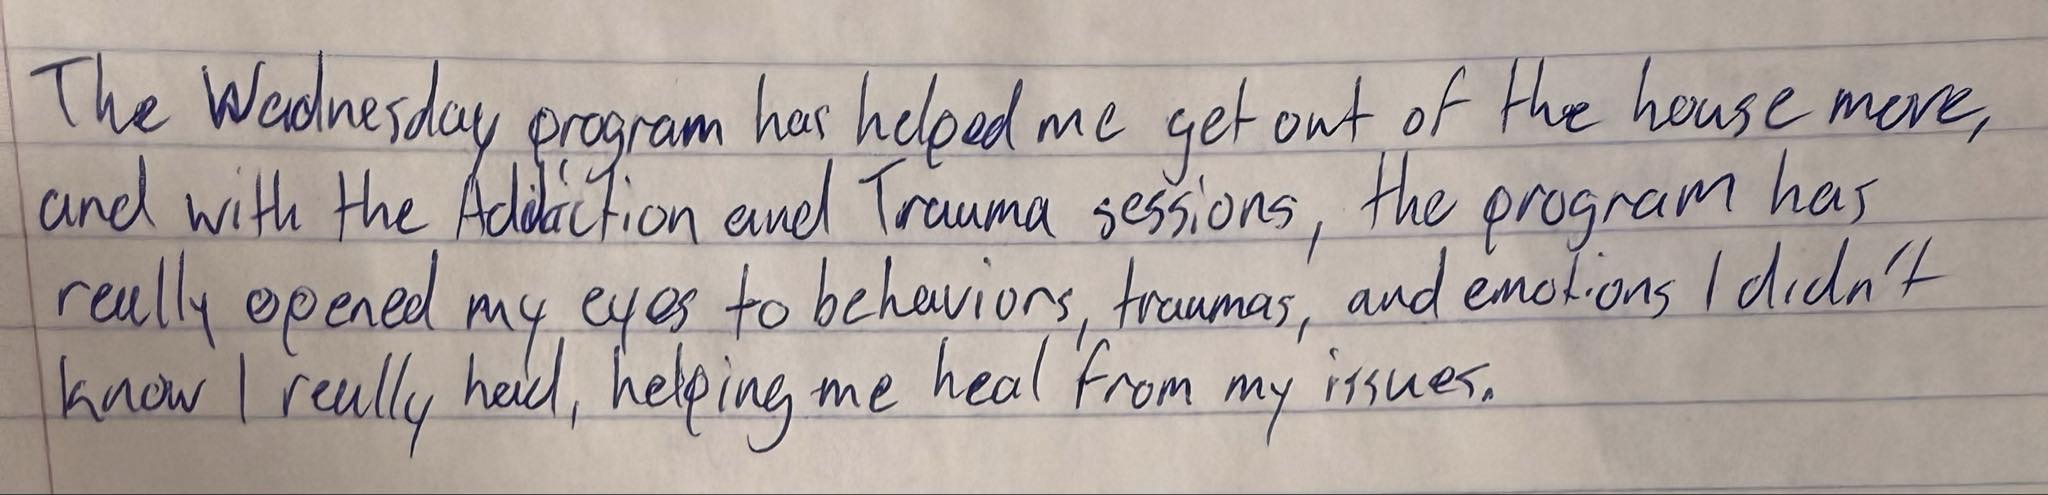 The Wednesday program has helped me get out of the house more,
and with the Addiction and Trauma sessions, the program has
really opened my eyes to behaviors, traumas, and emotions I didn't
know I really had, helping me heal from my issues.